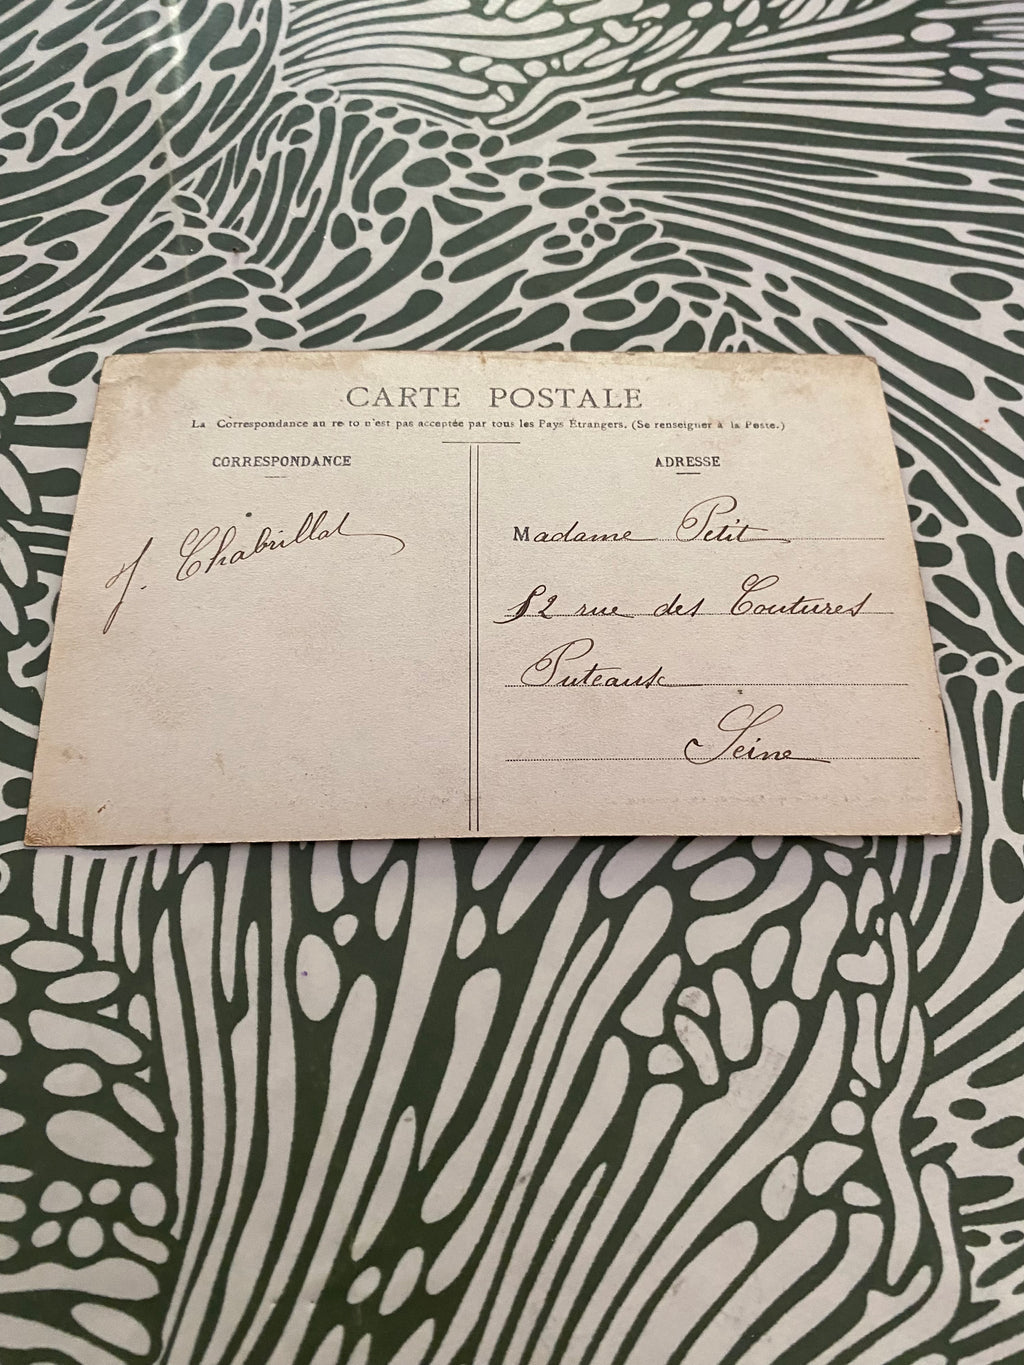 CARTE POSTALE
La Correspondance au re to n'est pas acceptée par tous les Pays Étrangers. (Se renseigner à la Poste.)
CORRESPONDANCE
J. Chabrillat
ADRESSE
Madame Petit
82 rue des Coutures
Puteaux
Seine